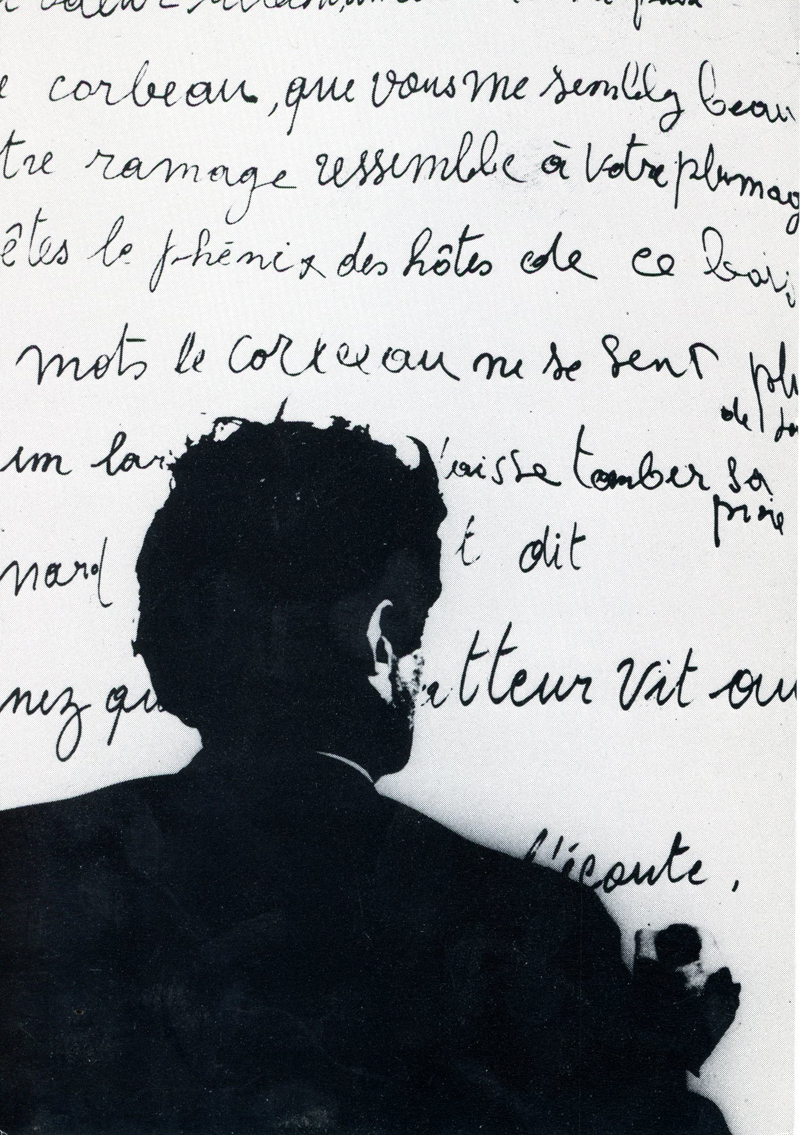 corbeau, que vous me semblez beau
tre ramage ressemble à votre plumag
êtes le phénix des hôtes de ce bois
mots le corbeau ne se sent
de
un lar laisse tomber sa
proie
nard t dit
nez qu atteur vit
l'écoute,